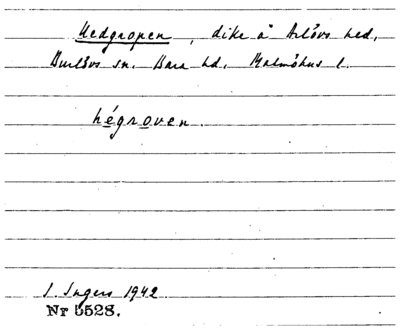 Hedgropen, dike å Arlövs hed,
Burlövs sn. Bara hd. Malmöhus l.
hégroven.
I. Ingers 1942
Nr 5528.